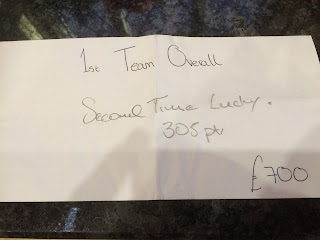 1st Team Overall
Second Time Lucky.
305pts
£700